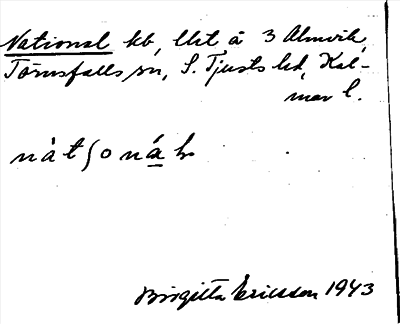 National kb, lht å 3 Almvik,
Törnsfalls sn, S. Tjusts hd, Kal-
mar l.
nàtʃonáh
Birgitta Ericsson 1943